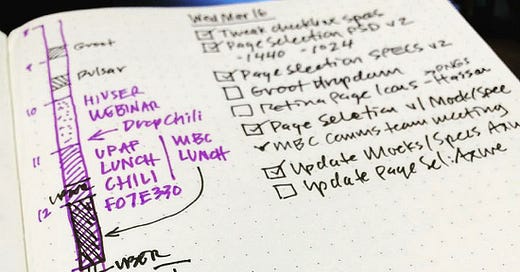 9
Groot
Pulsar
10
HIVSER
WEBINAR
Drop Chili
11
UPAP
LUNCH
CHILI
FO7E330
MBC
LUNCH
12
UBER
Wed Mar 16
Tweak checkline specs
Page Selection PSD v2
-1440 -1024
Page Selection SPECS v2
Groot dropdown
Retina Page Icons → PNGS
Hassan
Page Seletion v1 Mock/Spec
MBC Comms team meeting
Update Mocks/Specs Azure
Update Page Sel: Azure